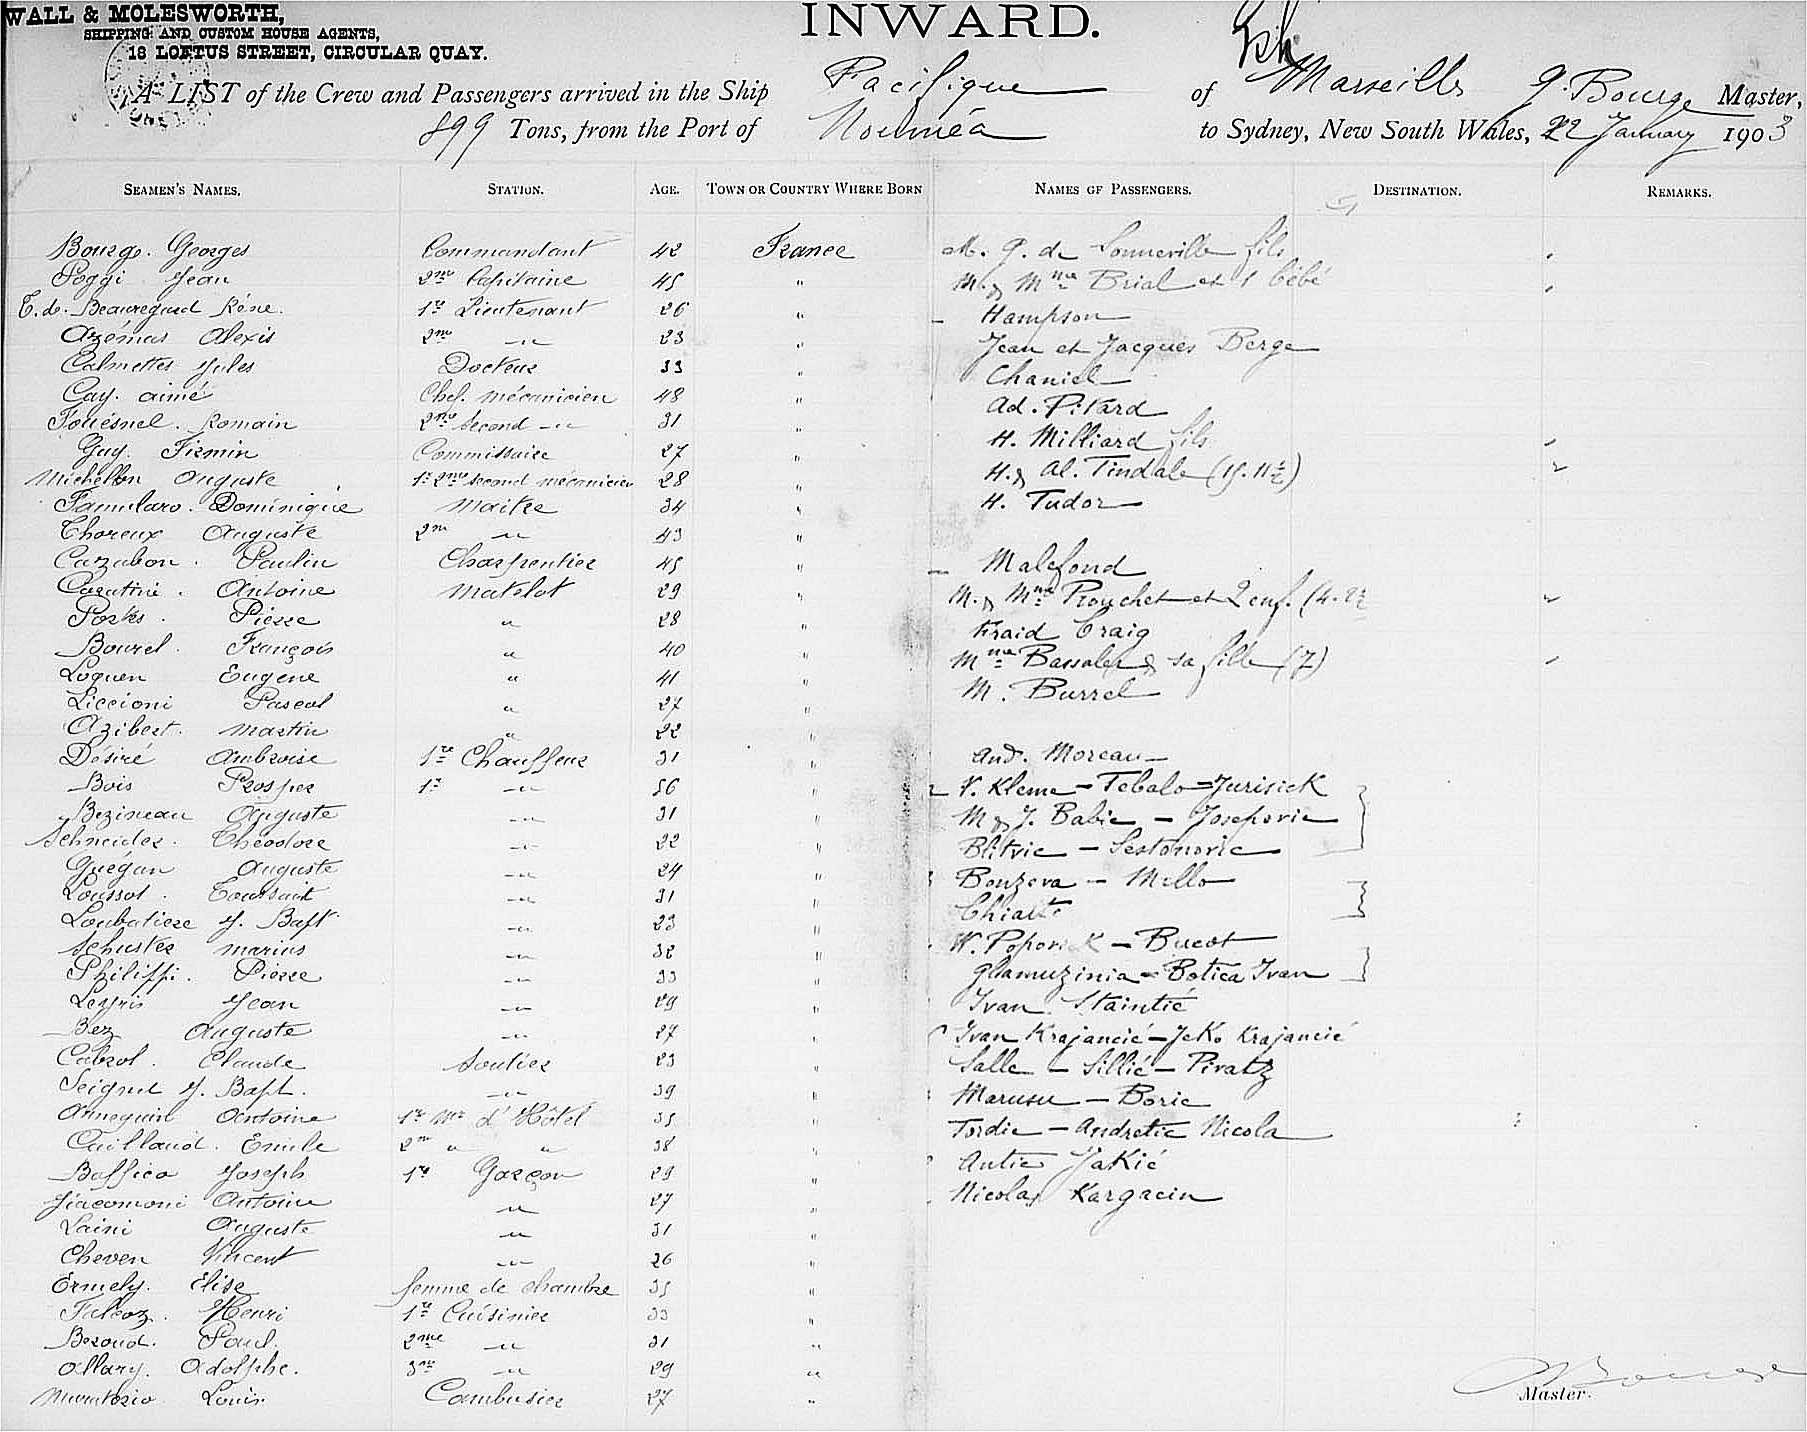 WALL & MOLESWORTH,
SHIPPING AND CUSTOM HOUSE AGENTS,
18 LOFTUS STREET, CIRCULAR QUAY.
INWARD.
A LIST of the Crew and Passengers arrived in the Ship Pacifique of Marseille G. Bourge Master,
899 Tons, from the Port of Nouméa to Sydney, New South Wales, 22 January 1903
SEAMEN'S NAMES. STATION. AGE. TOWN OR COUNTRY WHERE BORN NAMES OF PASSENGERS. DESTINATION. REMARKS.
Bourge Georges Commandant 42 France M. G. de Sonneville fils
Poggi Jean 2me Capitaine 45 " M. & Mme Brial et 1 bébé
T. de Beauregard Réne. 1er Lieutenant 26 " Hampson
Azémas Alexis 2me " 23 " Jean et Jacques Berge
Calmettes Jules Docteur 33 " Chaniel
Cay. aimé Chef. mécanicien 48 " Ad. Pitard
Fouésnel. Romain 2me Second " 31 " H. Milliard fils
Guy. Firmin Commissaire 27 " H. & Al. Tindale
Michellon Auguste second mécanicien 28 " H. Tudor
Famularo. Dominique Maitre 34 "
Thoreux Auguste 2me " 43 "
Cazabon. Paulin Charpentier 45 " Malefond
Casatini. Antoine Matelot 29 " M. & Mme Prouchet et 2 enf.
Porks. Pierre " 28 " Craig
Bourel. François " 40 " Mme Bassaler & sa fille (7)
Loquen Eugene " 41 " M. Burrel
Liccioni Pascal " 27 "
Azibert. Martin " 22 "
Désiré Ambroise 1er Chauffeur 31 " And. Moreau
Bois Prosper 1er " 56 " V. Kleme - Tebalo = Jurisick
Bezineau Auguste " 31 " M & J. Babic - Joseporic
Schneider. Théodore " 22 " Blitvic - Sestonoric
Guégan Auguste " 24 " Bonzera - Mello
Loussot. Toussaint " 31 "
Loubatiere J. Bapt " 23 "
Schuster Marius " 32 " Bucot
Philippi. Pierre " 33 " Glamuzinia - Botica Ivan
Leyris Jean " 29 " Ivan Staintié
Bez Auguste " 27 " Ivan Krajancié - Jeko Krajancié
Cabrol. Claude Soutier 23 " Salle - Sillié - Piratz
Seignel J. Bapt. " 39 " Marusu - Boric
Annequin Antoine 1er Me d'Hôtel 35 " Tordic - Andretic Nicola
Caillaud. Emile 2me " " 38 " Antic Jakié
Baffico Joseph 1er Garçon 29 " Nicolas Kargacin
Giacomoni Antoine " 27 "
Laini Auguste " 31 "
Cheven Vincent " 26 "
Ermely. Elise femme de chambre 35 "
Falcoz. Henri 1er Cuisinier 33 "
Beraud. Paul. 2me " 31 "
Allary. Adolphe. 3me " 29 "
Louis Cambusier 27 "
Bourge
Master.